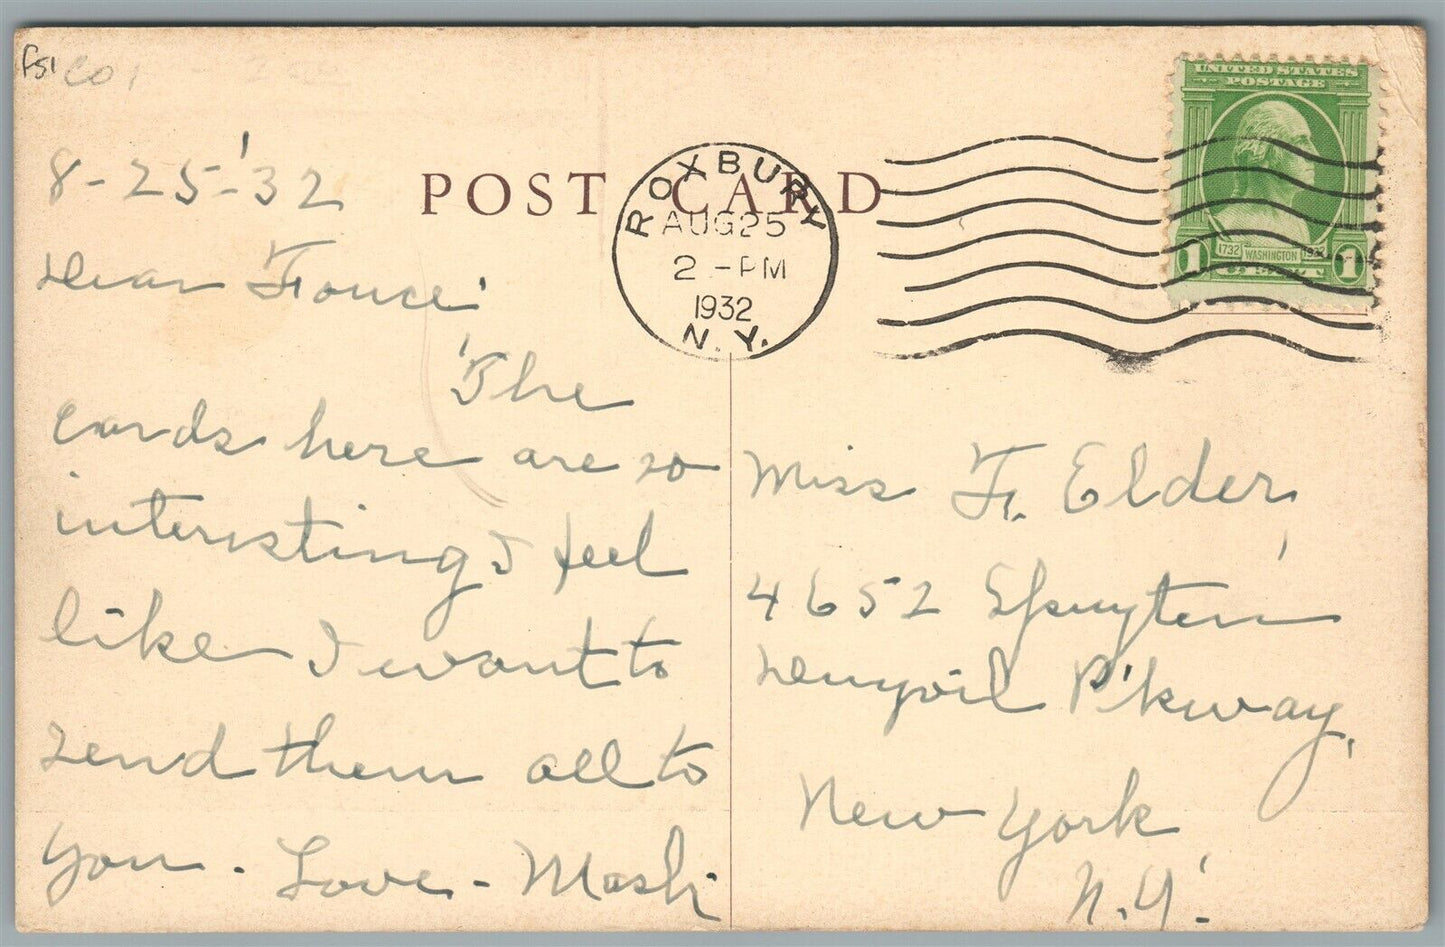 8-25-'32
POST CARD
ROXBURY
AUG 25
2 - PM
1932
N.Y.
UNITED STATES
POSTAGE
1732 WASHINGTON 1932
1 CENT 1
Dear
The
cards here are so
interesting I feel
like I want to
send them all to
you. Love -
Miss F. Elder,
4652 Spuyten
Denyvil P'kway,
New York
N.Y.